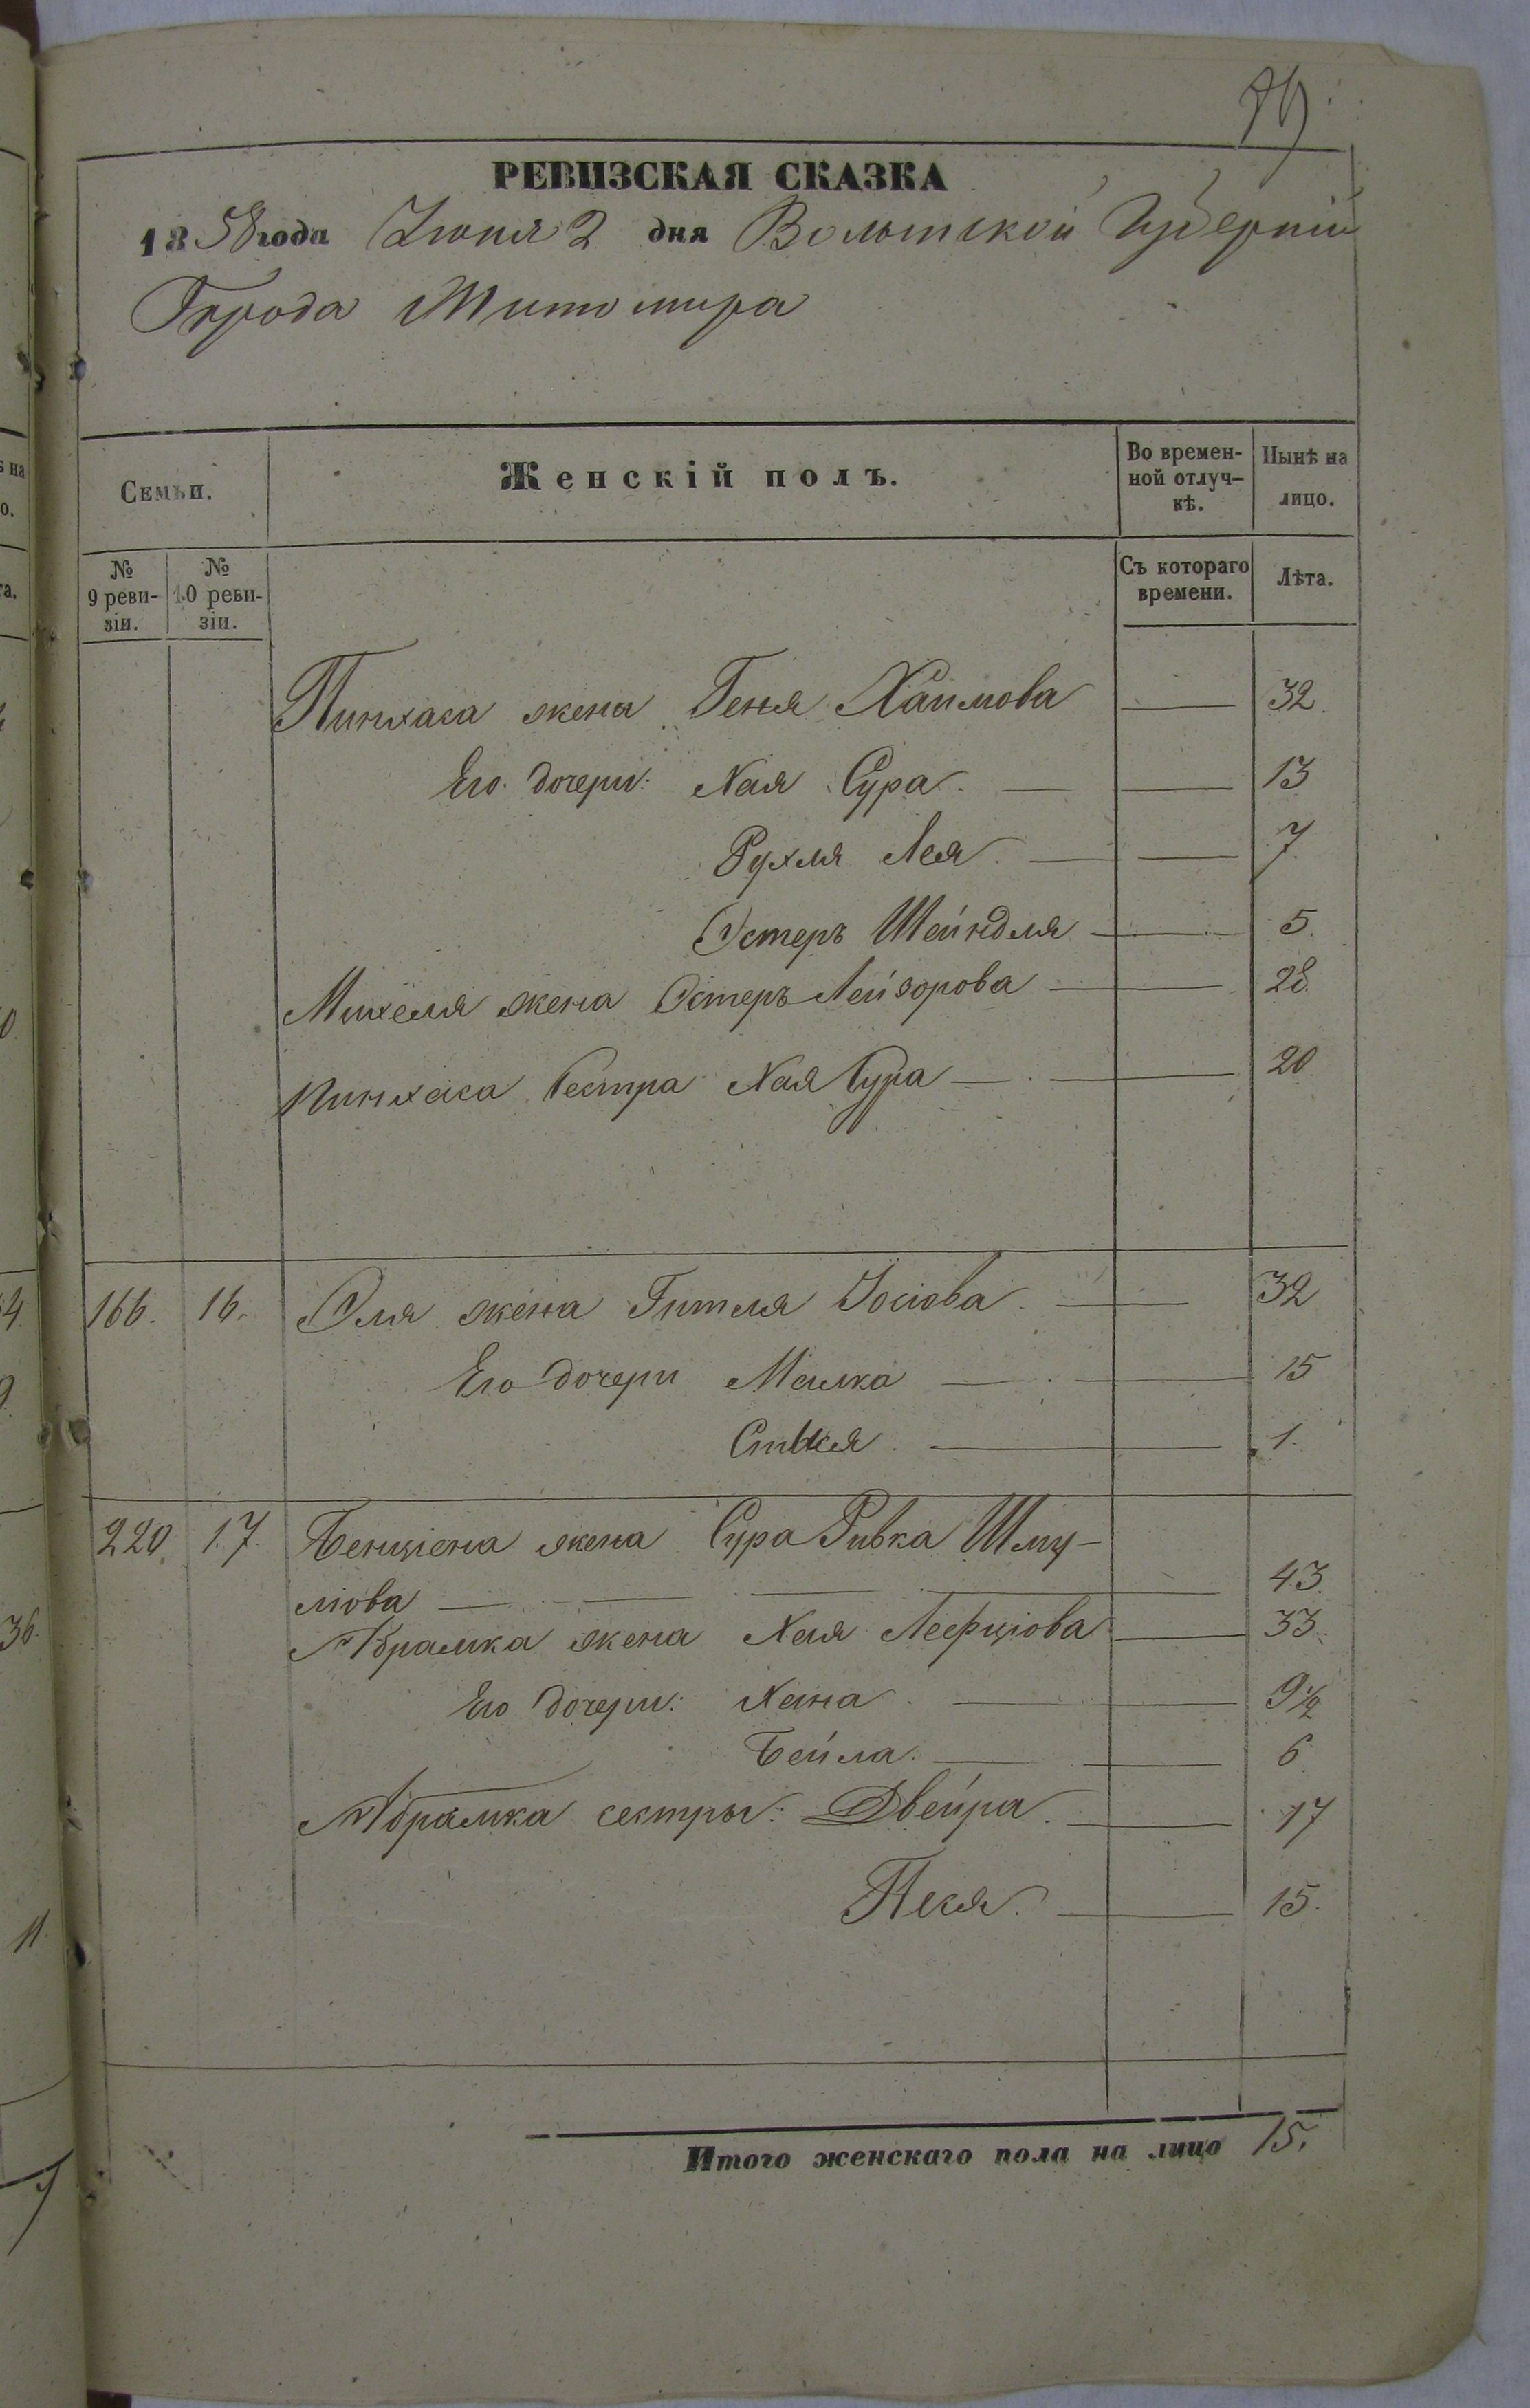 РЕВИЗСКАЯ СКАЗКА
1858 года Іюня 2 дня Волынской Губерніи
Города Житомира
Семьи. Женскій полъ. Во временной отлучкѣ. Нынѣ на лицо.
№ 9 ревизіи. № 10 ревизіи. Съ котораго времени. Лѣта.
Пинхаса жена Геня Хаимова — 32.
Его дочери: Хая Сура — 13
Рухля Лея — 7.
Эстеръ Шейндля — 5.
Михеля жена Эстеръ Лейзорова — 28.
Пинхаса Сестра Хая Сура — 20
166. 16. Эля жена Гитля Іосіова — 32
Его дочери Малка — 15
— 1.
220. 17. Бенціона жена Сура Ривка Шму-
ліова — 43.
Абрамка жена Хая — 33.
Его дочери: Хана — 9½
Бейла — 6
Абрамка сестры: Двейра — 17
Песя — 15.
Итого женскаго пола на лицо 15.